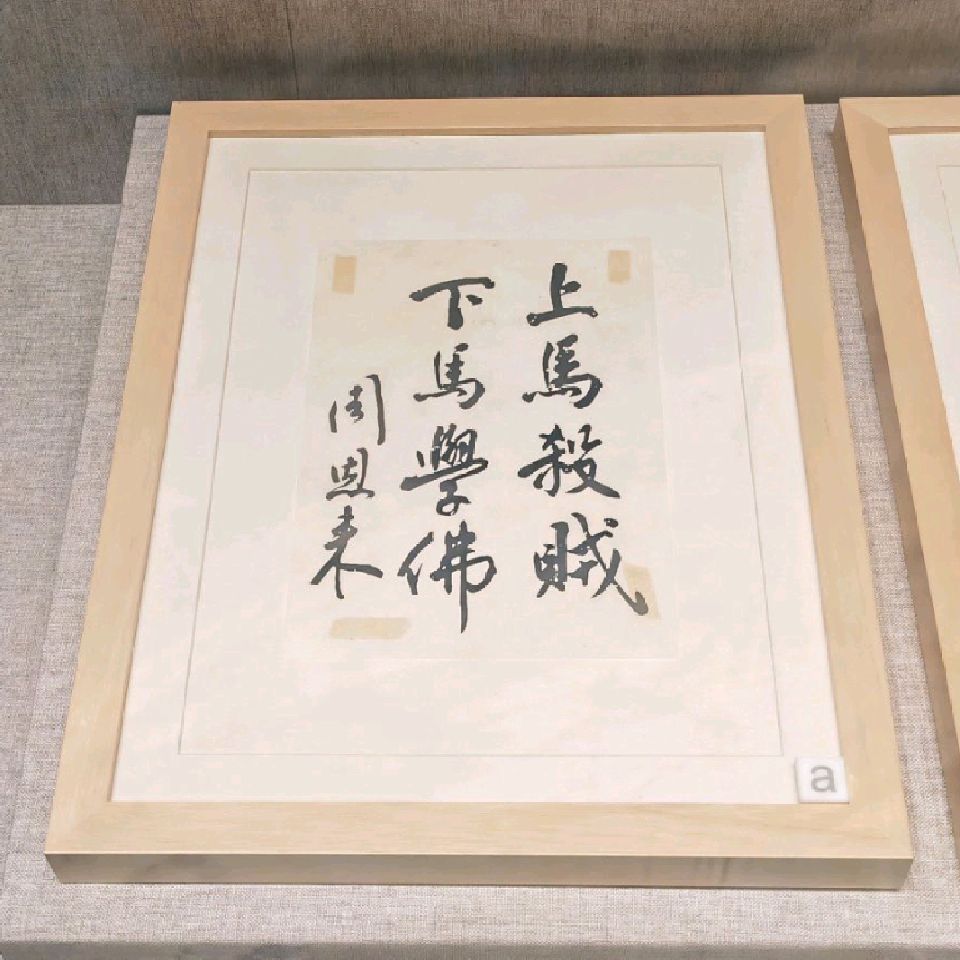 上馬殺賊
下馬學佛
周恩来
a